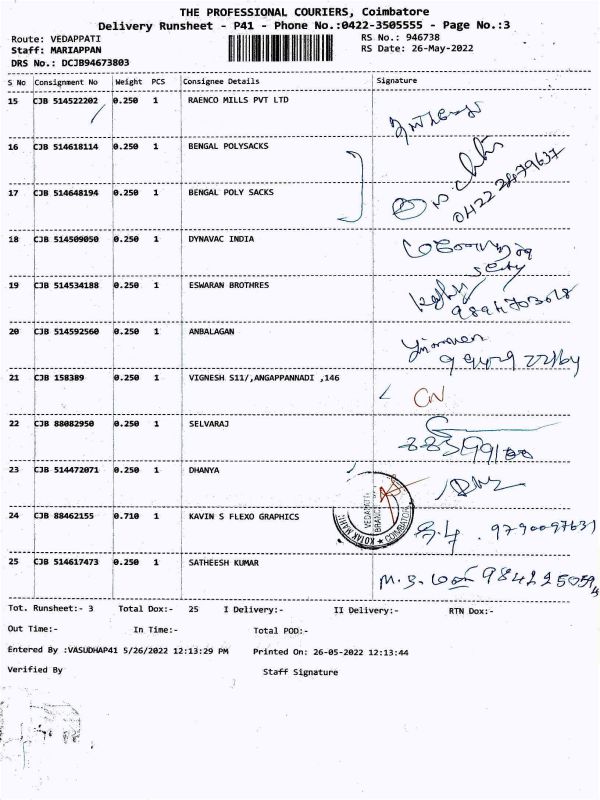 THE PROFESSIONAL COURIERS, Coimbatore
Delivery Runsheet - P41 - Phone No.:0422-3505555 - Page No.:3
Route: VEDAPPATI RS No.: 946738
Staff: MARIAPPAN RS Date: 26-May-2022
DRS No.: DCJB94673803
S No Consignment No Weight PCS Consignee Details Signature
15 CJB 514522202 0.250 1 RAENCO MILLS PVT LTD
16 CJB 514618114 0.250 1 BENGAL POLYSACKS
17 CJB 514648194 0.250 1 BENGAL POLY SACKS
18 CJB 514509050 0.250 1 DYNAVAC INDIA
19 CJB 514534188 0.250 1 ESWARAN BROTHRES
20 CJB 514592560 0.250 1 ANBALAGAN
21 CJB 158389 0.250 1 VIGNESH S11/,ANGAPPANNADI ,146
CN
22 CJB 88082950 0.250 1 SELVARAJ
23 CJB 514472071 0.250 1 DHANYA
24 CJB 88462155 0.710 1 KAVIN S FLEXO GRAPHICS
KOTAK MAHI VEDAPATTI BRANCH COIMBATORE
25 CJB 514617473 0.250 1 SATHEESH KUMAR
Tot. Runsheet:- 3 Total Dox:- 25 I Delivery:- II Delivery:- RTN Dox:-
Out Time:- In Time:- Total POD:-
Entered By :VASUDHAP41 5/26/2022 12:13:29 PM Printed On: 26-05-2022 12:13:44
Verified By Staff Signature